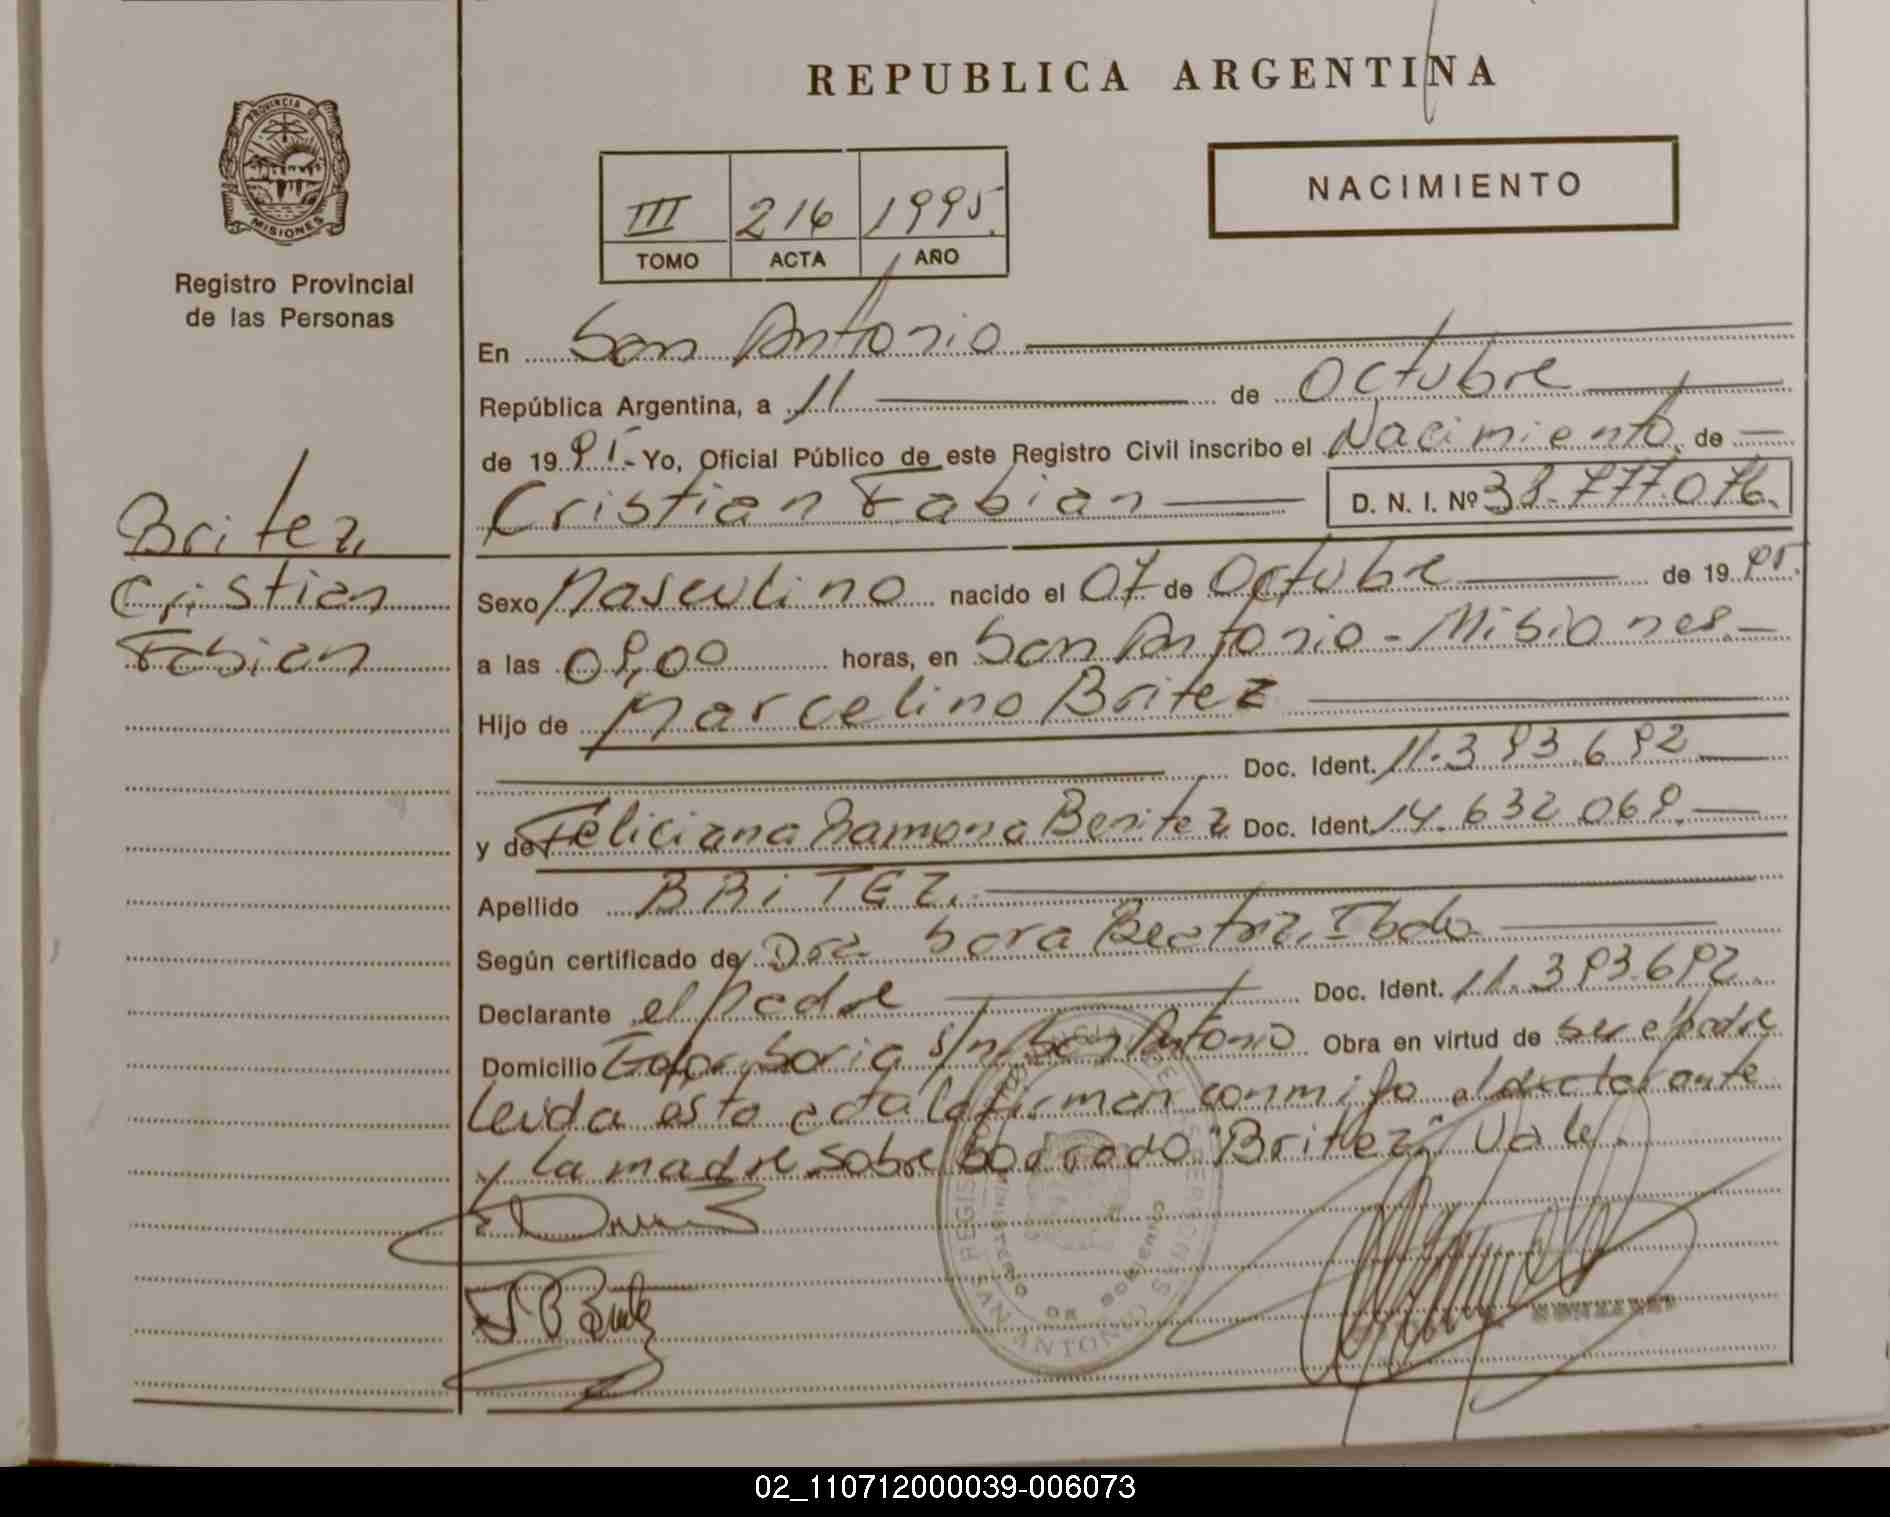 REPUBLICA ARGENTINA
PROVINCIA DE MISIONES
Registro Provincial
de las Personas
NACIMIENTO
III 216 1995.
TOMO ACTA AÑO
En San Antonio
República Argentina, a 11 de Octubre
de 1995.- Yo, Oficial Público de este Registro Civil inscribo el Nacimiento de
Cristian Fabian D. N. I. Nº 38.777.076.
Britez,
Cristian
Fabian
Sexo Masculino nacido el 07 de Octubre de 1995.
a las 09,00 horas, en San Antonio - Misiones.-
Hijo de Marcelino Britez
Doc. Ident. 11.393.692
y de Feliciana Ramona Benitez Doc. Ident. 14.632.069.
Apellido BRiTEZ.
Según certificado de Dra. Sara Beatriz
Declarante el Padre Doc. Ident. 11.393.692.
Domicilio s/n. San Antonio Obra en virtud de ser el padre
Leida esta acta la firman conmigo el declarante
y La madre sobre borrado "Britez" Vale.
REGIS
MINISTERIO DE GOBIERNO
SAN ANTONIO
02_110712000039-006073